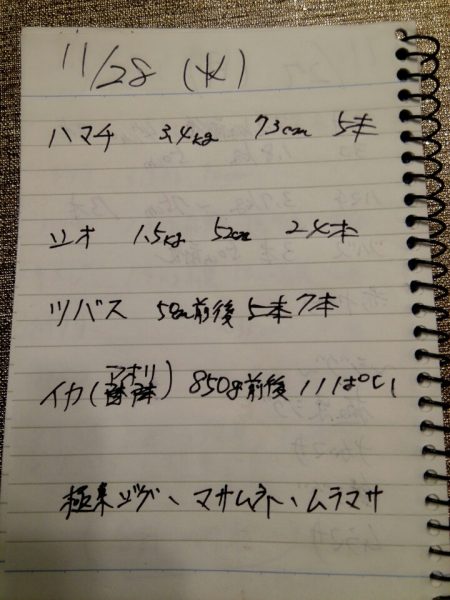 11/28 (水)
ハマチ 3.4kg 73cm 5本
シオ 1.5kg 52cm 24本
ツバス 50cm前後 7本
イカ(アオリ) 850g前後 11ぱい
ジグ、マサムネ、ムラマサ